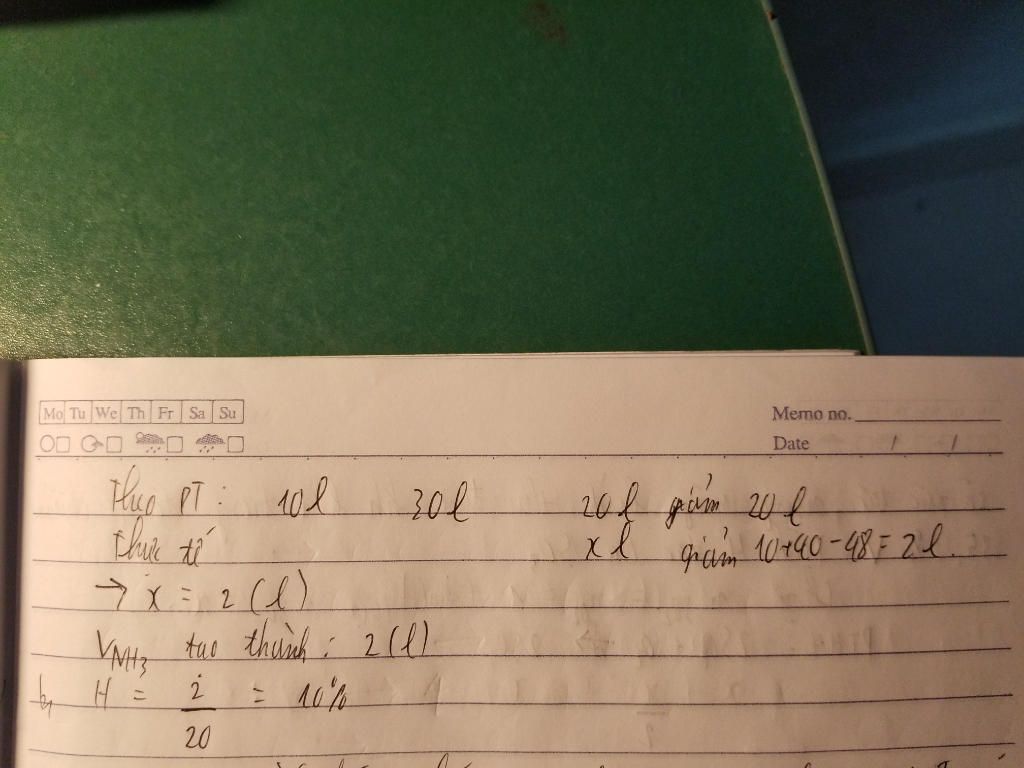 Mo Tu We Th Fr Sa Su
Memo no.
Date / /
Theo PT : 10 l 30 l 20 l giảm 20 l
Thực tế x l giảm 10+40-48 = 2 l.
→ x = 2 (l)
VNH3 tạo thành : 2 (l)
b, H = 2/20 = 10%